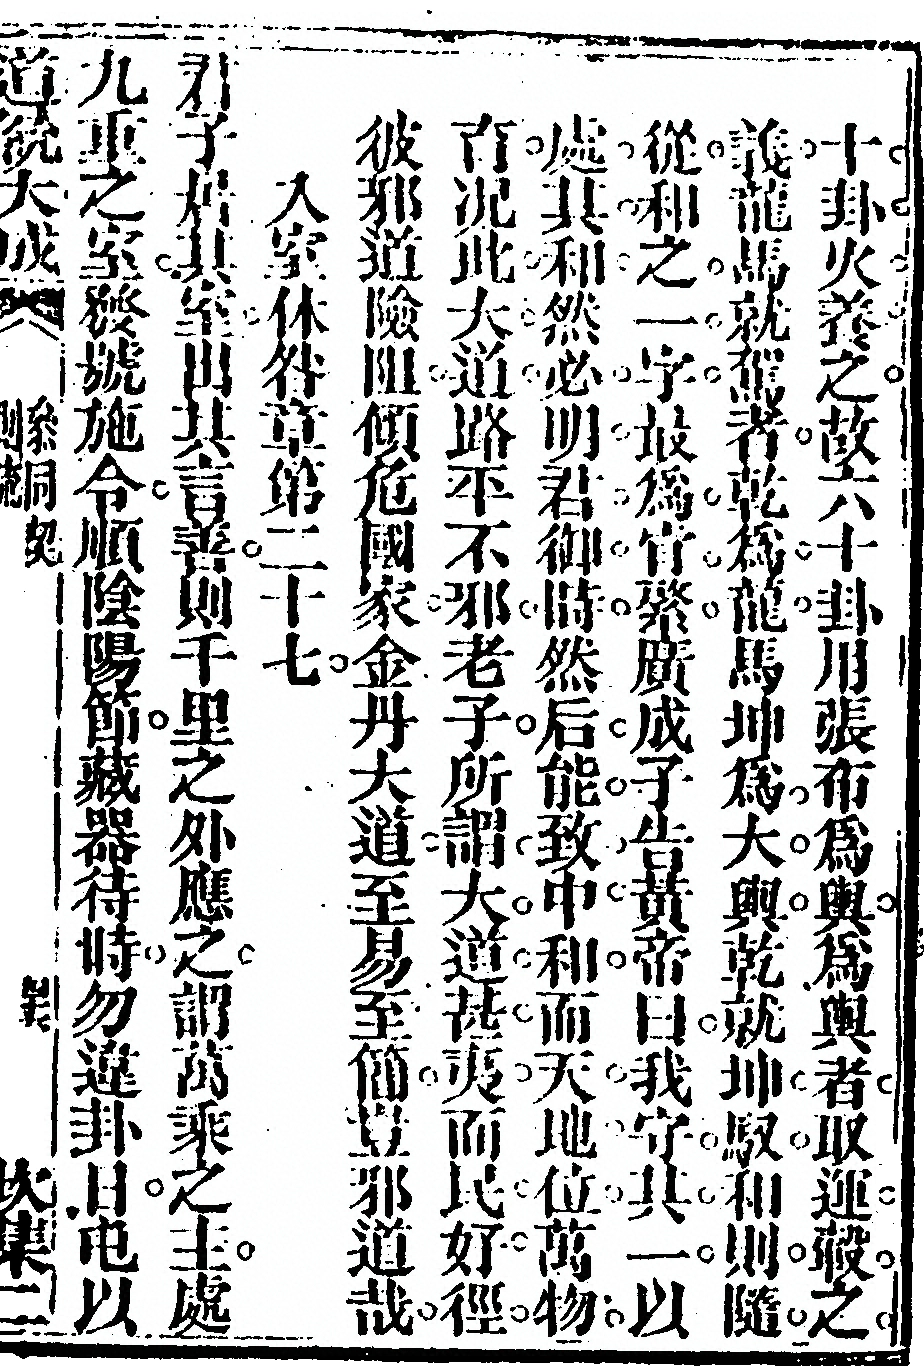 十卦火養之故六十卦用張布爲輿爲輿者取運轂之
義龍馬就駕者乾爲龍馬坤爲大輿乾就坤馭和則隨
從和之一字最爲肯綮廣成子告黃帝曰我守其一以
處其和然必明君御時然后能致中和而天地位萬物
育況此大道路平不邪老子所謂大道甚夷而民好徑
彼邪道險阻傾危國家金丹大道至易至簡豈邪道哉
入室休咎章第二十七
君子居其室出其言善則千里之外應之謂萬乘之主處
九重之室發號施令順陰陽節藏器待時勿違卦日屯以
道統大成
參同契
測疏
坎集二